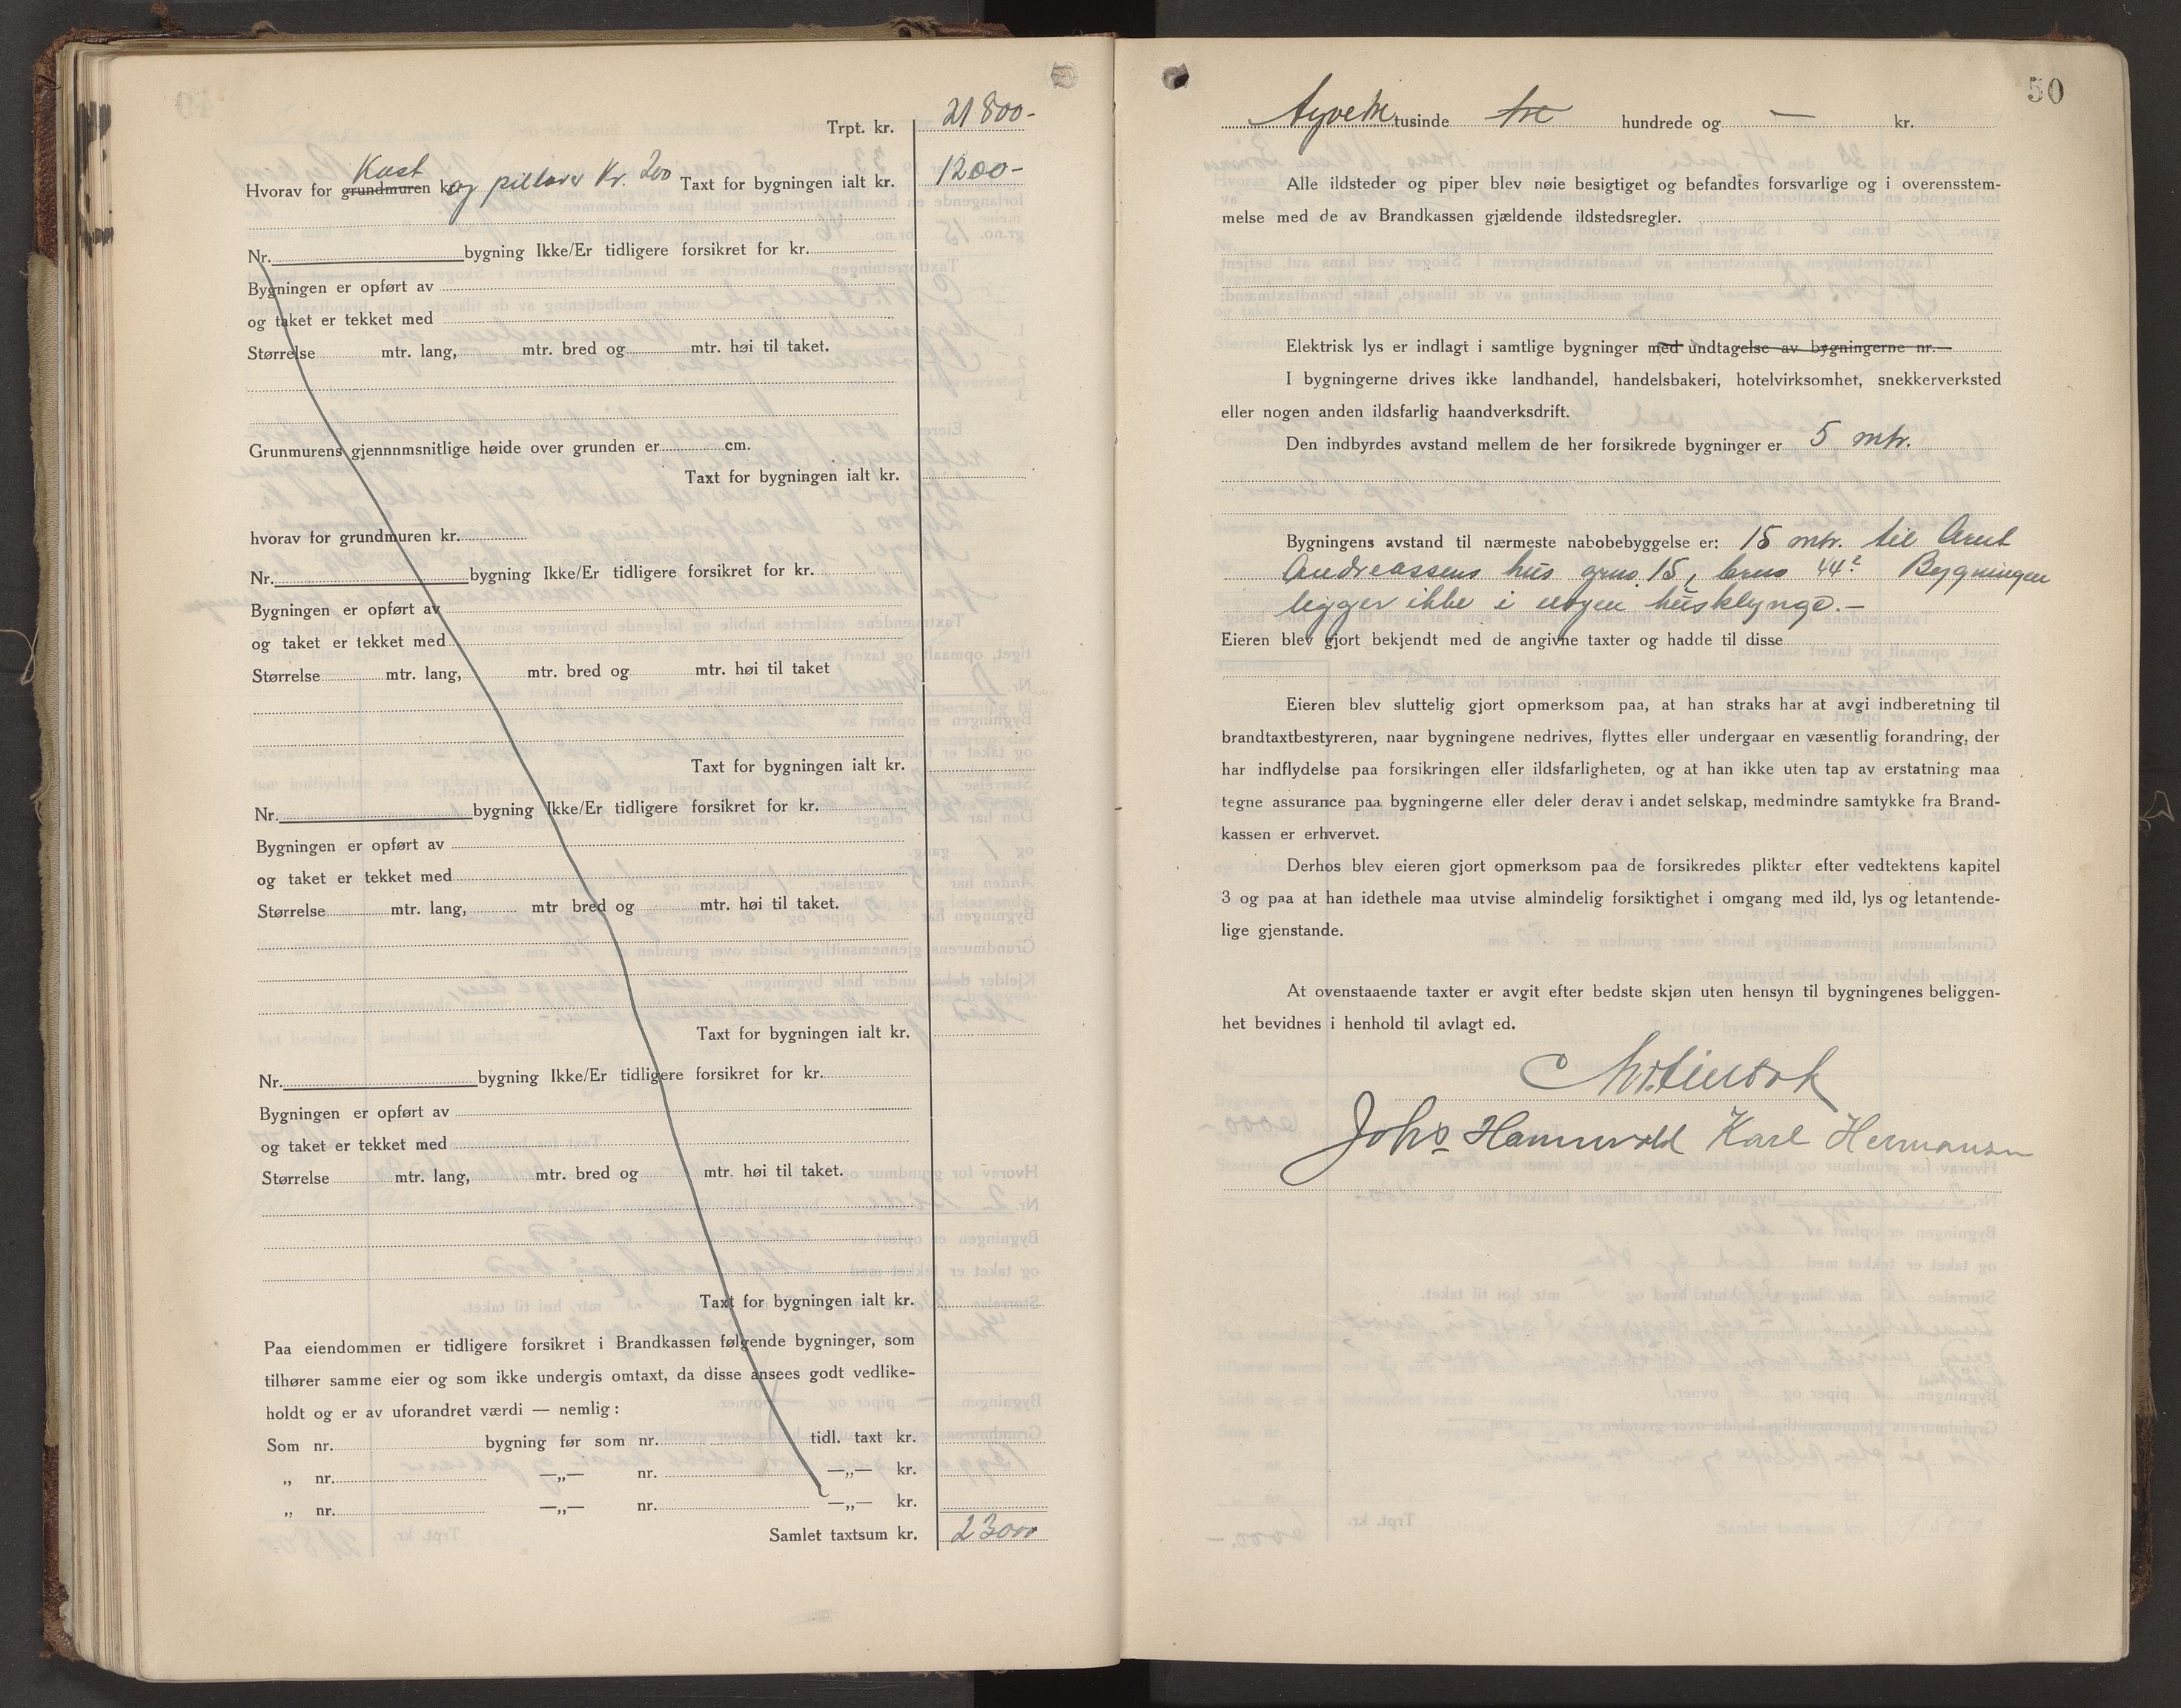 Trpt. kr. 21 800-
Hvorav for grundmuren kr. Kast og pillarer Kr. 200 Taxt for bygningen ialt kr. 1200-
Nr. bygning Ikke/Er tidligere forsikret for kr.
Bygningen er opført av
og taket er tekket med
Størrelse mtr. lang, mtr. bred og mtr. høi til taket.
Grunmurens gjennnmsnitlige høide over grunden er cm.
Taxt for bygningen ialt kr.
hvorav for grundmuren kr.
Nr. bygning Ikke/Er tidligere forsikret for kr.
Bygningen er opført av
og taket er tekket med
Størrelse mtr. lang, mtr. bred og mtr. høi til taket
Taxt for bygningen ialt kr.
Nr. bygning Ikke/Er tidligere forsikret for kr.
Bygningen er opført av
og taket er tekket med
Størrelse mtr. lang, mtr bred og mtr. høi til taket.
Taxt for bygningen ialt kr.
Nr. bygning Ikke/Er tidligere forsikret for kr.
Bygningen er opført av
og taket er tekket med
Størrelse mtr. lang, mtr. bred og mtr. høi til taket.
Taxt for bygningen ialt kr.
Paa eiendommen er tidligere forsikret i Brandkassen følgende bygninger, som
tilhører samme eier og som ikke undergis omtaxt, da disse ansees godt vedlike-
holdt og er av uforandret værdi — nemlig :
Som nr. bygning før som nr. tidl. taxt kr.
„ nr. —„— nr. —„— kr.
„ nr. —„— nr. —„— kr.
Samlet taxtsum kr. 23000
50
tyvetre tusinde tre hundrede og — kr.
Alle ildsteder og piper blev nøie besigtiget og befandtes forsvarlige og i overensstem-
melse med de av Brandkassen gjældende ildstedsregler.
Elektrisk lys er indlagt i samtlige bygninger med undtagelse av bygningerne nr.
I bygningerne drives ikke landhandel, handelsbakeri, hotelvirksomhet, snekkerverksted
eller nogen anden ildsfarlig haandverksdrift.
Den indbyrdes avstand mellem de her forsikrede bygninger er 5 mtr.
Bygningens avstand til nærmeste nabobebyggelse er: 15 mtr. til Arnt
Andreassens hus grno 15, brno 44. Bygningen
ligger ikke i nogen husklynge.—
Eieren blev gjort bekjendt med de angivne taxter og hadde til disse
Eieren blev sluttelig gjort opmerksom paa, at han straks har at avgi indberetning til
brandtaxtbestyreren, naar bygningene nedrives, flyttes eller undergaar en væsentlig forandring, der
har indflydelse paa forsikringen eller ildsfarligheten, og at han ikke uten tap av erstatning maa
tegne assurance paa bygningerne eller deler derav i andet selskap, medmindre samtykke fra Brand-
kassen er erhvervet.
Derhos blev eieren gjort opmerksom paa de forsikredes plikter efter vedtektens kapitel
3 og paa at han idethele maa utvise almindelig forsiktighet i omgang med ild, lys og letantende-
lige gjenstande.
At ovenstaaende taxter er avgit efter bedste skjøn uten hensyn til bygningenes beliggen-
het bevidnes i henhold til avlagt ed.
Johs Hannevold Karl Hermansen